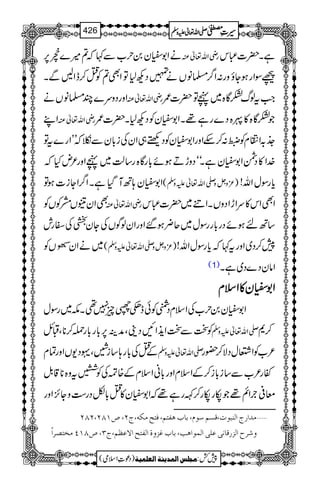 سیرتِ مصطفیٰ صلی اللہ تعالیٰ علیہ وسلم 426
ہے۔ حضرت عباس رضی اللہ تعالیٰ عنہ نے ابوسفیان بن حرب سے کہا کہ تم میرے خچر پر
پیچھے سوار ہو جاؤ ورنہ اگر مسلمانوں نے تمہیں دیکھ لیا تو ابھی تم کو قتل کر ڈالیں گے۔
جب یہ لوگ لشکر گاہ میں پہنچے تو حضرت عمر رضی اللہ تعالیٰ عنہ اور دوسرے چند مسلمانوں نے
جو لشکر گاہ کا پہرہ دے رہے تھے۔ ابوسفیان کو دیکھ لیا۔ حضرت عمر رضی اللہ تعالیٰ عنہ اپنے
جذبۂ انتقام کو ضبط نہ کر سکے اور ابوسفیان کو دیکھتے ہی ان کی زبان سے نکلا کہ ’’ارے یہ تو
خدا کا دشمن ابوسفیان ہے۔‘‘ دوڑتے ہوئے بارگاہ رسالت میں پہنچے اور عرض کیا کہ
یارسول اللہ! (عزوجل و صلی اللہ تعالیٰ علیہ وسلم) ابوسفیان ہاتھ آ گیا ہے۔ اگر اجازت ہو تو
ابھی اس کا سر اڑا دوں۔ اتنے میں حضرت عباس رضی اللہ تعالیٰ عنہ بھی ان تینوں مشرکوں کو
ساتھ لئے ہوئے دربار رسول میں حاضر ہو گئے اور ان لوگوں کی جان بخشی کی سفارش
پیش کر دی اور یہ کہا کہ یارسول اللہ! (عزوجل و صلی اللہ تعالیٰ علیہ وسلم) میں نے ان سبھوں کو
امان دے دی ہے۔ (۱)
ابوسفیان کا اسلام
ابوسفیان بن حرب کی اسلام دشمنی کوئی ڈھکی چھپی چیز نہیں تھی۔ مکہ میں رسول
کریم صلی اللہ تعالیٰ علیہ وسلم کو سخت سے سخت ایذائیں دینی، مدینہ پر بار بار حملہ کرنا، قبائل
عرب کو اشتعال دلا کر حضور صلی اللہ تعالیٰ علیہ وسلم کے قتل کی بار بار سازشیں، یہودیوں اور تمام
کفار عرب سے ساز باز کر کے اسلام اور بانی اسلام کے خاتمہ کی کوششیں یہ وہ نا قابل
معافی جرائم تھے جو پکار پکار کر کہہ رہے تھے کہ ابوسفیان کا قتل بالکل درست و جائز اور
1......مدارج النبوت، قسم سوم، باب هفتم، فتح مکه، ج۲، ص۲۸۱، ۲۸۲
وشرح الزرقانی علی المواهب، باب غزوة الفتح الاعظم، ج۳، ص۴۱۸ مختصراً
پیش کش: مجلس المدینۃ العلمیۃ (دعوتِ اسلامی)